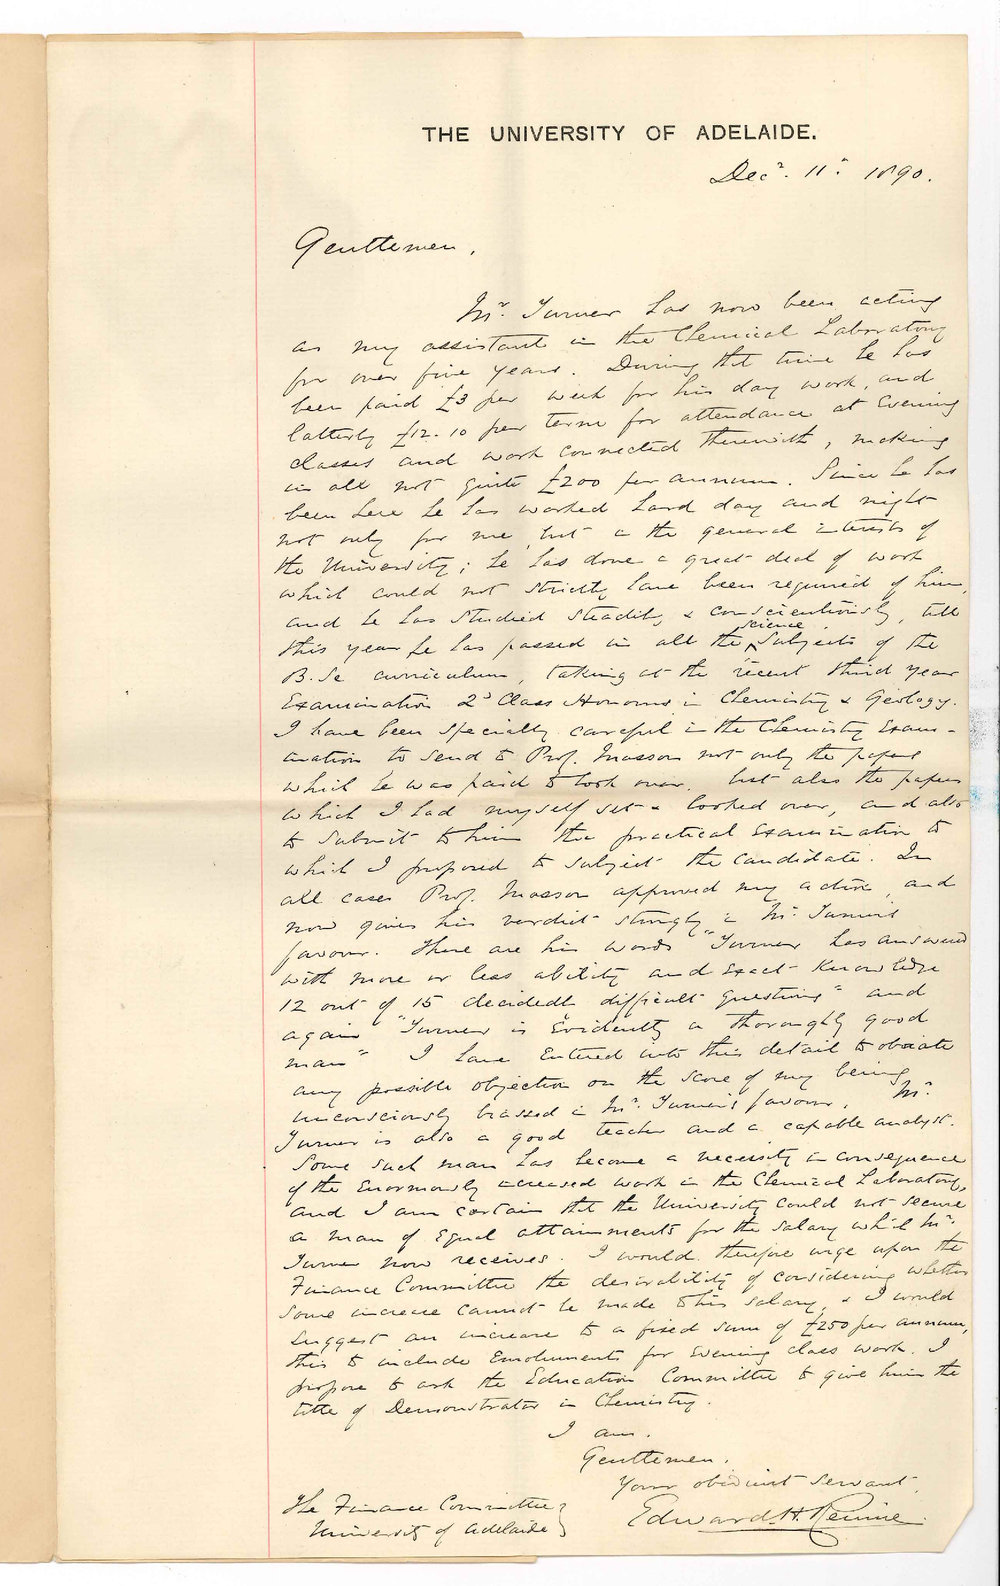 THE UNIVERSITY OF ADELAIDE.
Decr. 11. 1890.
Gentlemen,
Mr Turner has now been acting
as my assistant in the Chemical Laboratory
for over five years. During that time he has
been paid £3 per week for his day work, and
latterly £12.10 per term for attendance at Evening
classes and work connected therewith, making
in all not quite £200 per annum. Since he has
been here he has worked hard day and night
not only for me, but in the general interests of
the University; he has done a great deal of work
which could not strictly have been required of him,
and he has studied steadily & conscientiously, till
this year he has passed in all the science subjects of the
B.Sc curriculum, taking at the recent third year
Examination 2d Class Honours in Chemistry & Geology.
I have been specially careful in the Chemistry Exam-
ination to send to Prof. Masson not only the papers
which he was paid to look over, but also the papers
which I had myself set & looked over, and also
to submit to him the practical Examination to
which I proposed to subject the candidate. In
all cases Prof. Masson approved my action, and
now gives his verdict strongly in Mr. Turner's
favour. These are his words "Turner has answered
with more or less ability and exact knowledge
12 out of 15 decidedly difficult questions" and
again "Turner is evidently a thoroughly good
man" I have entered into this detail to obviate
any possible objection on the score of my being
unconsciously biassed in Mr. Turner's favour. Mr.
Turner is also a good teacher and a capable analyst.
Some such man has become a necessity in consequence
of the enormously increased work in the Chemical Laboratory,
and I am certain that the University could not secure
a man of equal attainments for the salary which Mr.
Turner now receives. I would therefore urge upon the
Finance Committee the desirability of considering whether
some increase cannot be made to his salary, & I would
suggest an increase to a fixed sum of £250 per annum,
this to include Emoluments for Evening class work. I
propose to ask the Education Committee to give him the
title of Demonstrator in Chemistry.
I am.
Gentlemen.
Your obedient servant.
Edward H. Rennie.
The Finance Committee
University of Adelaide